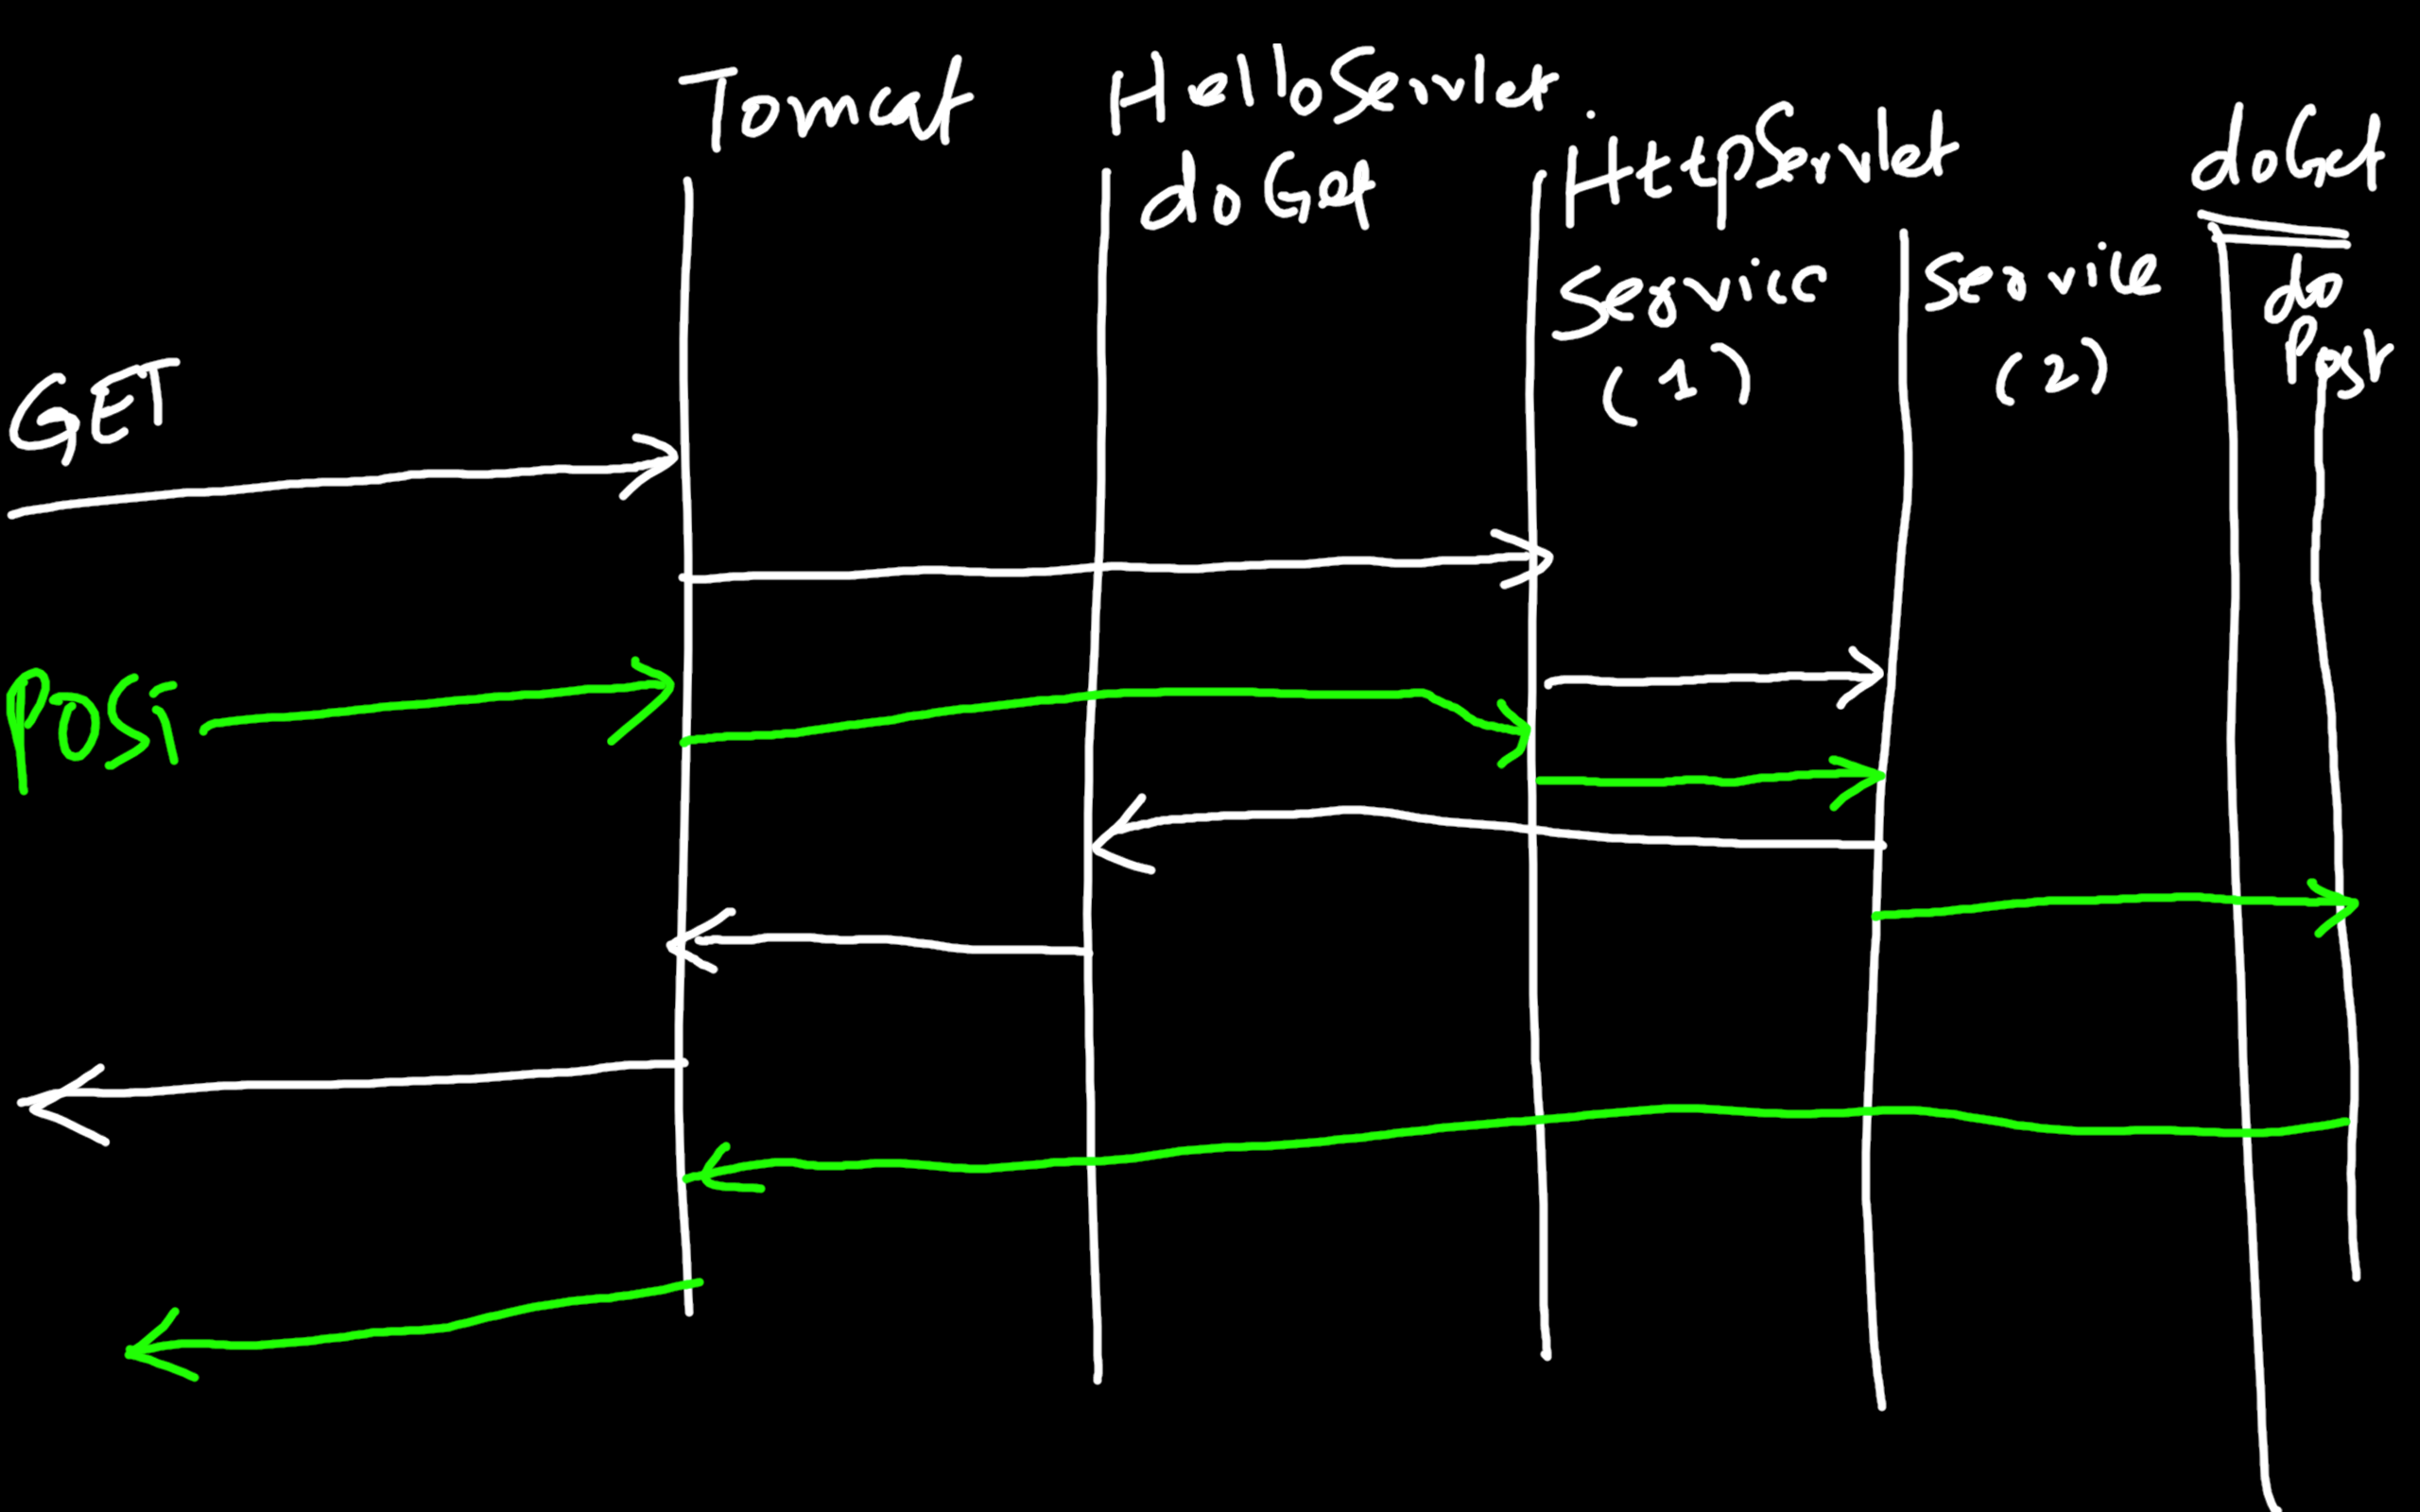 Tomcat
HelloServlet.
doGet
HttpServlet
service
(1)
service
(2)
doGet
do
Post
GET
POST